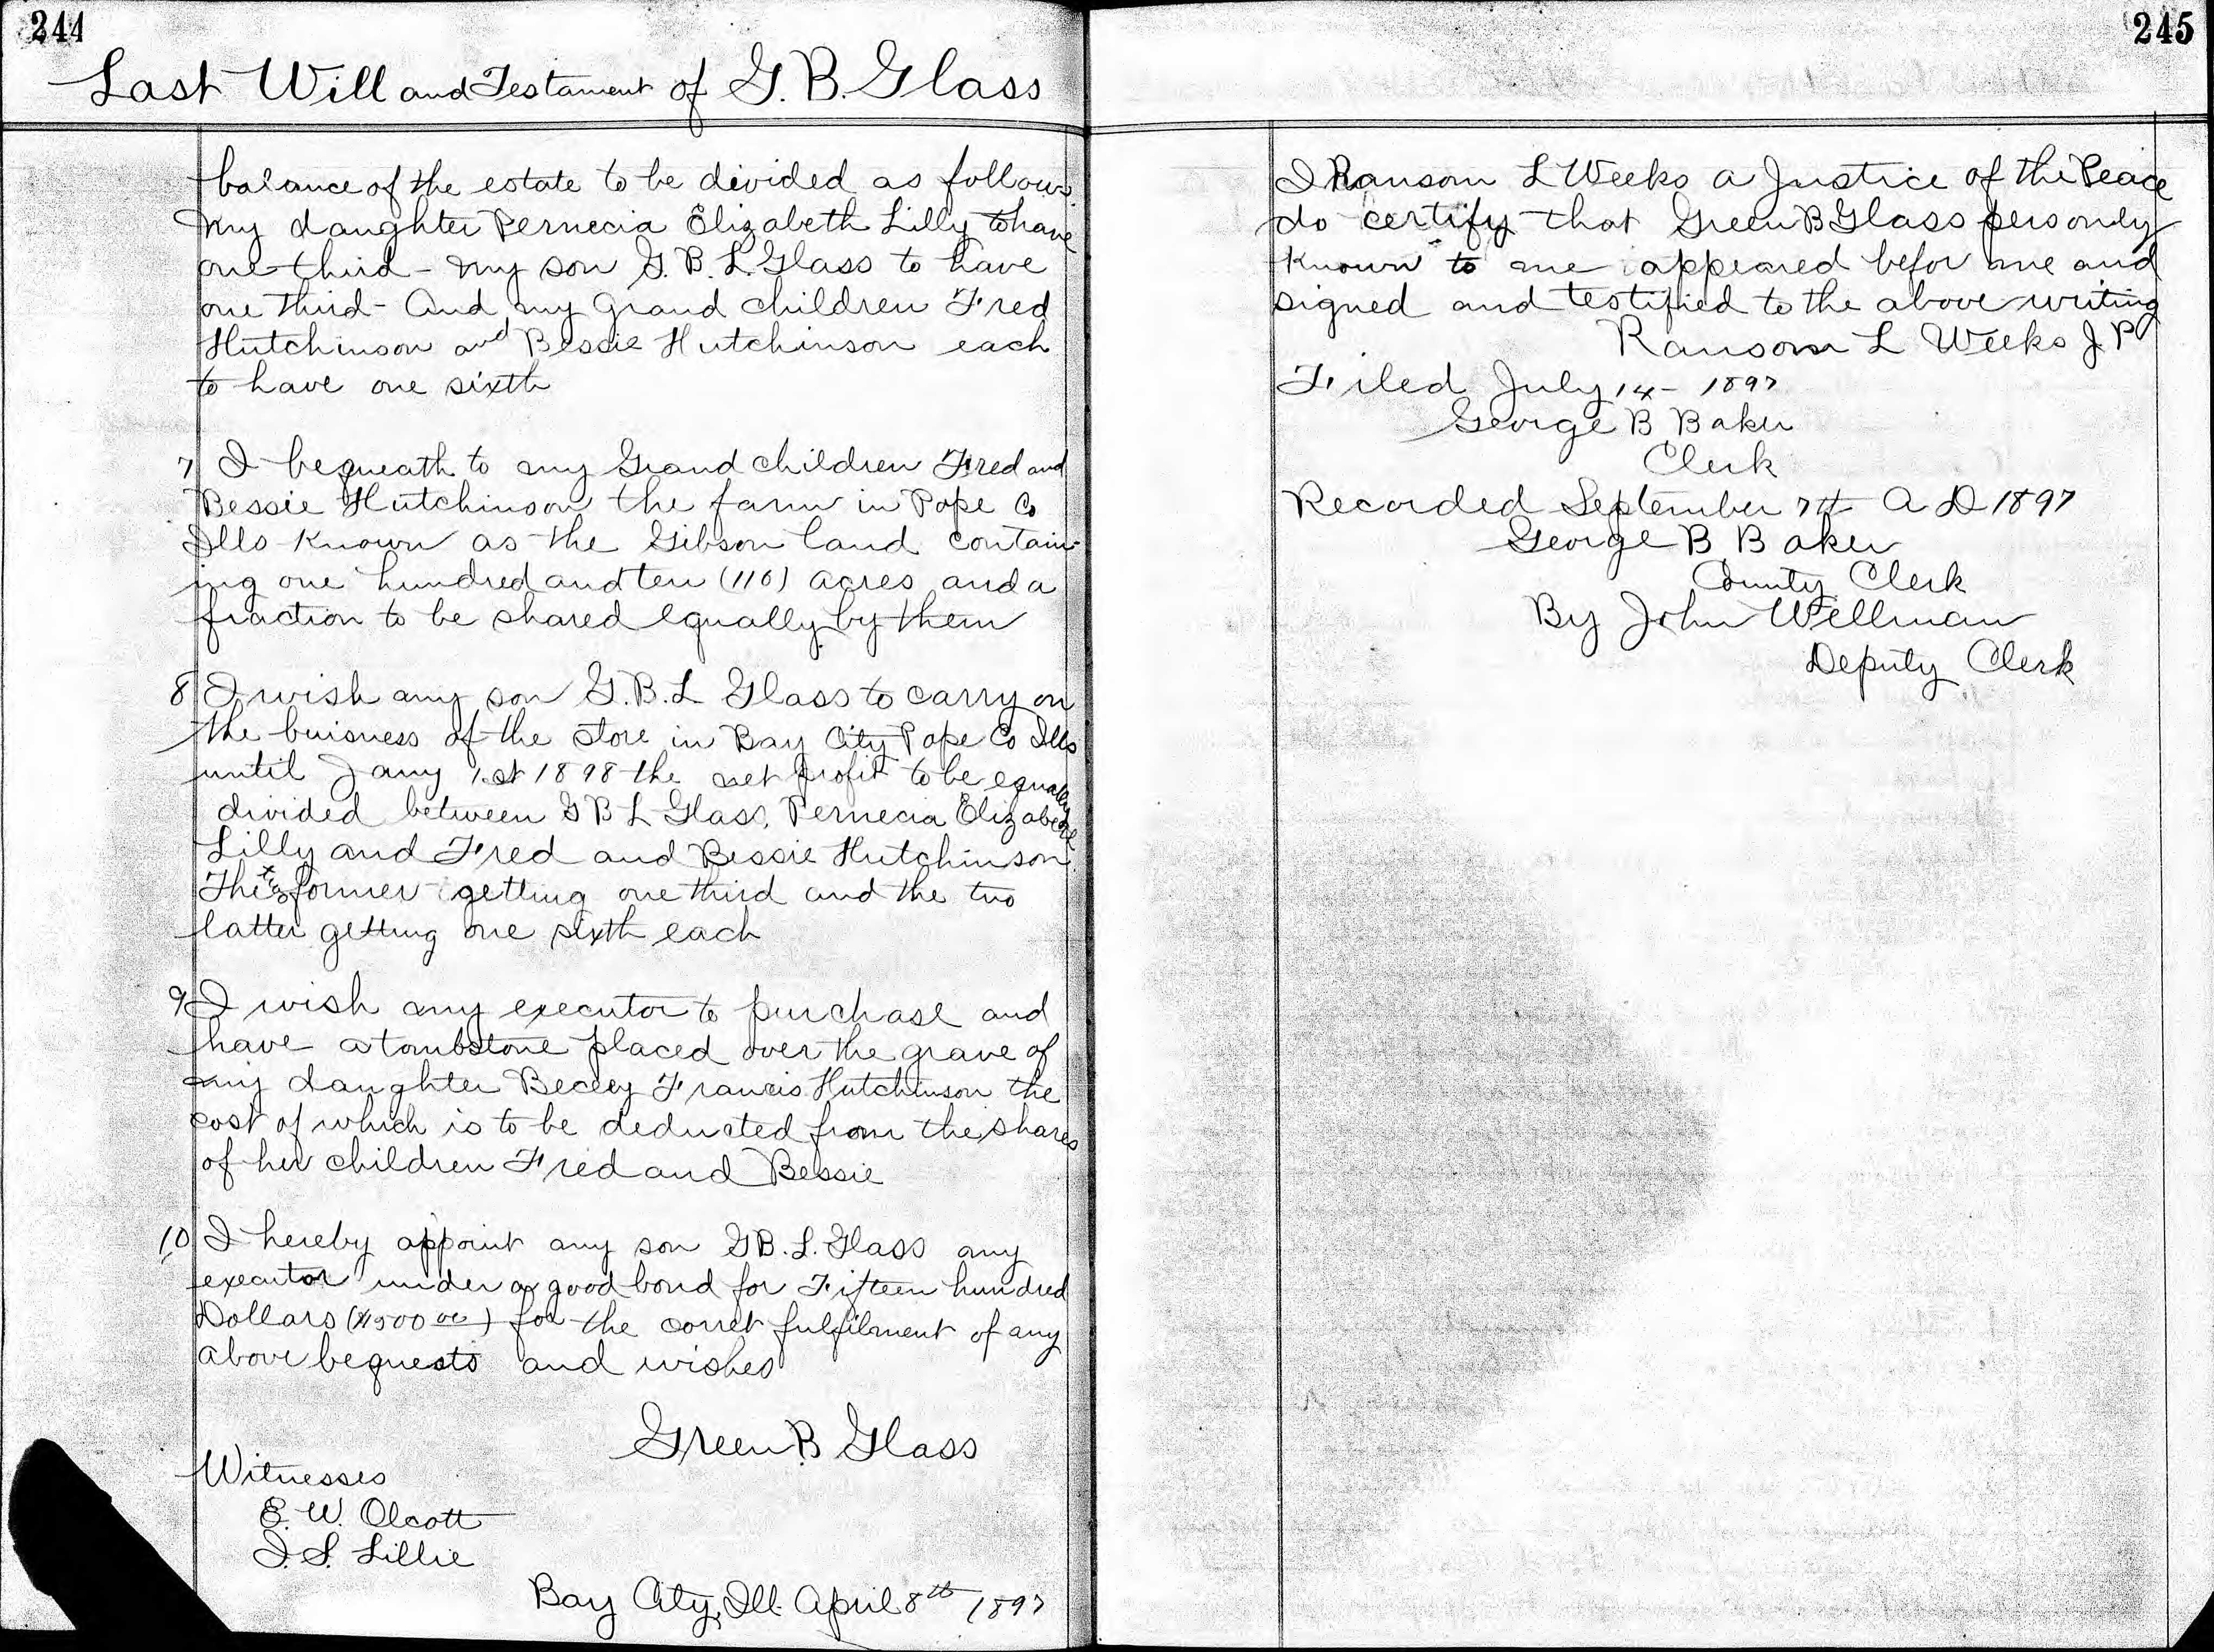 244
Last Will and Testament of G. B. Glass
balance of the estate to be divided as follows.
My daughter Pernecia Elizabeth Lilly to have
one third - My son G. B. L. Glass to have
one third - And my Grand children Fred
Hutchinson and Bessie Hutchinson each
to have one sixth
7 I bequeath to my Grand children Fred and
Bessie Hutchinson the farm in Pope Co
Ills known as the Gibson land contain-
ing one hundred and ten (110) acres and a
fraction to be shared equally by them
8 I wish my son G. B. L Glass to carry on
the buisness of the store in Bay City Pope Co Ills
until Jany 1st 1898 the net profit to be equally
divided between G B L Glass, Pernecia Elizabeth
Lilly and Fred and Bessie Hutchinson
The two former getting one third and the two
latter getting one sixth each
9 I wish my executor to purchase and
have a tombstone placed over the grave of
my daughter Beccy Francis Hutchinson the
cost of which is to be deducted from the shares
of her children Fred and Bessie
10 I hereby appoint my son G B. L. Glass my
executor under a good bond for Fifteen hundred
Dollars ($1500 00) for the corret fulfilment of my
above bequests and wishes
Green B Glass
Witnesses
E. W. Olcott
J. S. Lillie
Bay City, Ill. April 8th 1897
245
I Ransom L Weeks a Justice of the Peace
do certify that Green B Glass personly
Known to me appeared befor me and
signed and testified to the above writing
Ransom L Weeks J P
Filed July 14 - 1897
George B Baker
Clerk
Recorded September 7th A D 1897
George B Baker
County Clerk
By John Wellman
Deputy Clerk